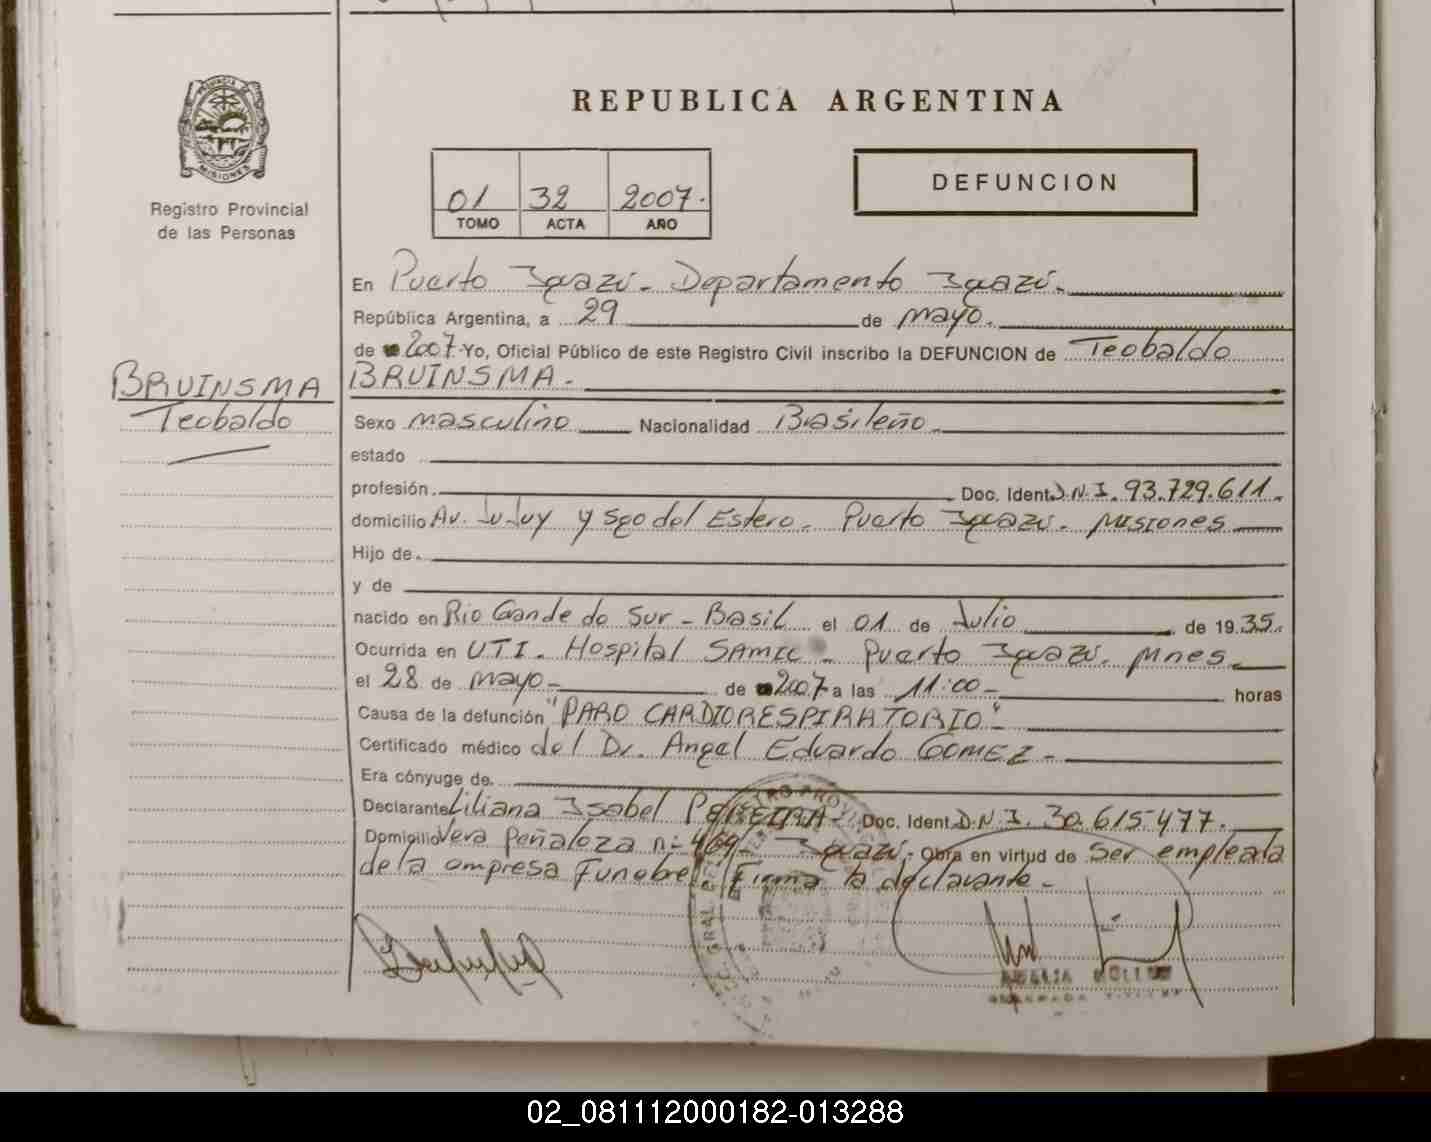 PROVINCIA DE
MISIONES
Registro Provincial
de las Personas
REPUBLICA ARGENTINA
01 32 2007.
TOMO ACTA AÑO
DEFUNCION
En Puerto Iguazú - Departamento Iguazú.
República Argentina, a 29 de mayo.
de 2007 Yo, Oficial Público de este Registro Civil inscribo la DEFUNCION de Teobaldo
BRUINSMA.
BRUINSMA
Teobaldo
Sexo masculino Nacionalidad Brasileño
estado
profesión. Doc. Ident. D.N.I. 93.729.611.
domicilio Av. Jujuy y sgo del Estero. Puerto Iguazú. Misiones
Hijo de
y de
nacido en Rio Grande do Sur - Brasil el 01 de Julio de 1935.
Ocurrida en UTI. Hospital SAMIC - Puerto Iguazú. Mnes.
el 28 de mayo - de 2007 a las 11:00 - horas
Causa de la defunción "PARO CARDIORESPIRATORIO"
Certificado médico del Dr. Angel Eduardo GOMEZ -
Era cónyuge de.
Declarante Liliana Isabel PEREIRA - Doc. Ident. D.N.I. 30.615.477.
Domicilio Vera Peñaloza nº 469 - Iguazú. Obra en virtud de ser empleada
de la empresa Funebre. Firma la declarante -
02_081112000182-013288